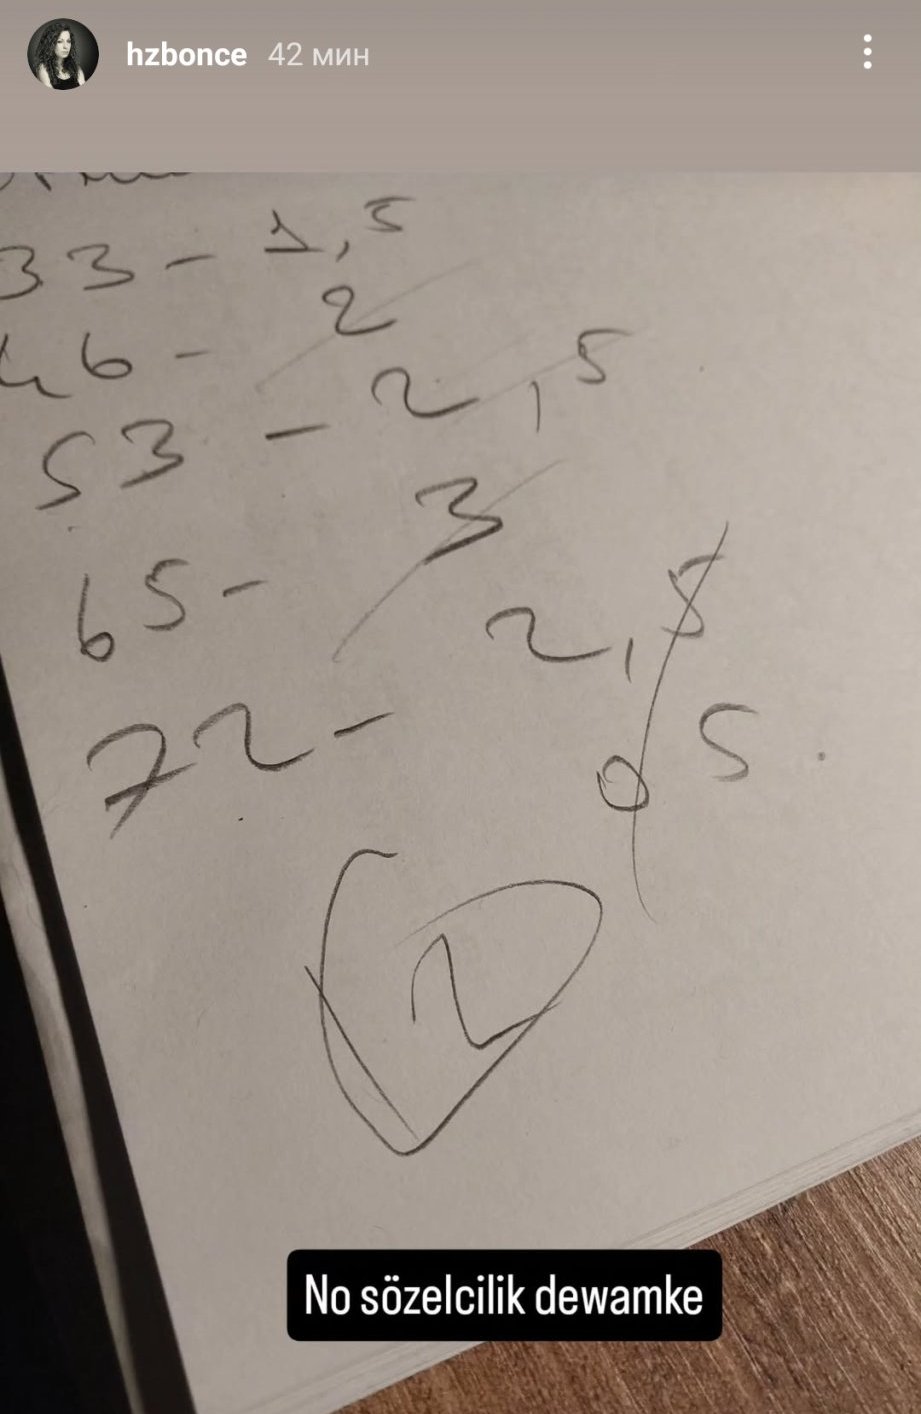 hzbonce 42 мин
33 - 1,5
46 - 2
53 - 2,5
65 - 3
72 - 2,5
0 5
2
No sözelcilik dewamke